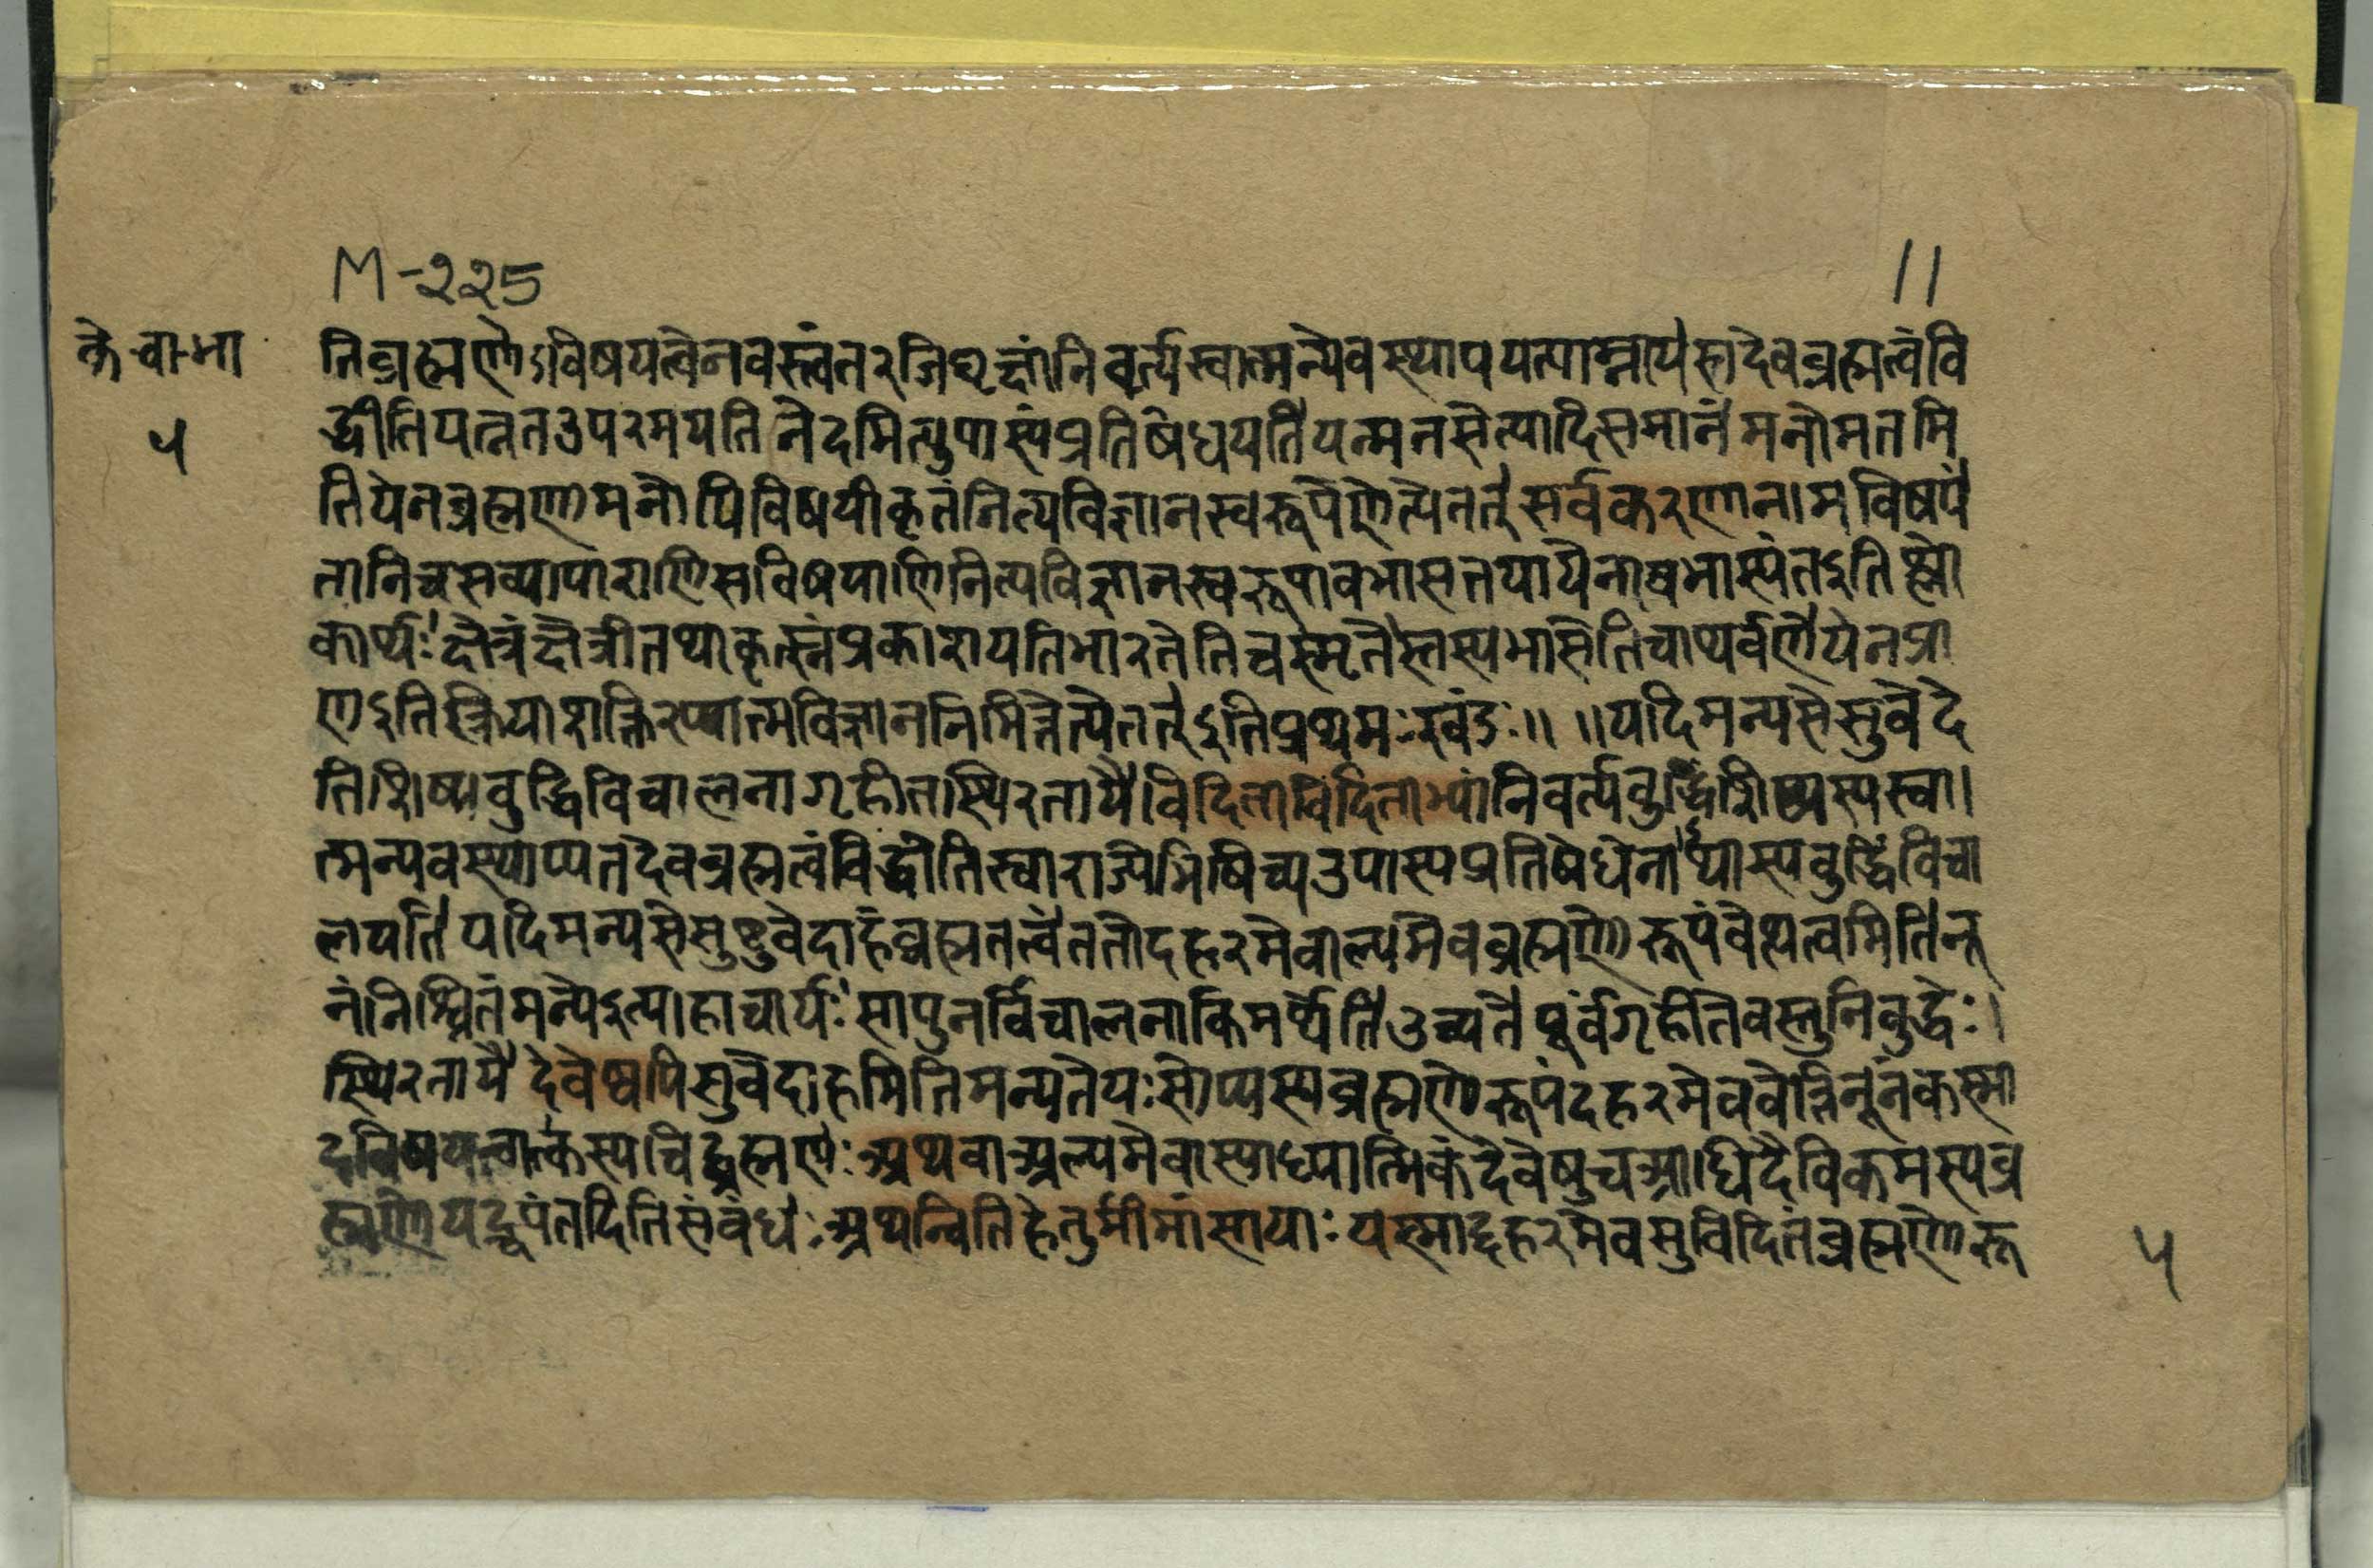 M-225
11
के-वा-भा
५
तिब्रह्मणोऽविषयत्वेनवस्त्वंतरजिघृक्षांनिवर्त्यस्वात्मन्येवस्थापयत्याम्नायस्तदेवब्रह्मत्वंवि
द्धीतियत्नतउपरमयतिनेदमित्युपास्यंप्रतिषेधयति यन्मनसेत्यादिसमानं मनोमतमि
तियेनब्रह्मणामनोपिविषयीकृतंनित्यविज्ञानस्वरूपेणेत्येतत् सर्वकरणानामविषयं
तानिचसव्यापाराणिसविषयाणिनित्यविज्ञानस्वरूपावभासतयायेनावभास्यंतइतिश्लो
कार्थः क्षेत्रंक्षेत्रीतथाकृत्स्नंप्रकाशयतिभारतेतिचस्मृतेस्तस्यभासेतिचाथर्वणेयेनप्रा
णइतिक्रियाशक्तिरप्यात्मविज्ञाननिमित्तेत्येतत् इतिप्रथमःखंडः॥ ॥यदिमन्यसेसुवेदे
तिशिष्यबुद्धिविचालनागृहीतस्थिरतायै विदिताविदिताभ्यांनिवर्त्यबुद्धिंशिष्यस्यस्वा।
त्मन्यवस्थाप्यतदेवब्रह्मत्वंविद्धीतिस्वाराज्येभिषिच्यउपास्यप्रतिषेधेनाथास्यबुद्धिंविचा
लयति यदिमन्यसेसुष्टुवेदाहंब्रह्मतत्वंततोदहरमेवाल्पमेवब्रह्मणोरूपंवेत्थत्वमितिनू
नंनिश्चितंमन्येइत्याहाचार्यः सापुनर्विचालनाकिमर्थेति उच्यते पूर्वगृहीतेवस्तुनिबुद्धेः।
स्थिरतायै देवेष्वपिसुवेदाहमितिमन्यतेयःसोप्यस्यब्रह्मणोरूपंदहरमेववेत्तिनूनंकस्मा
दविषयत्वात्कस्यचिद्ब्रह्मणः अथवाअल्पमेवास्याध्यात्मिकंदेवेषुचआधिदैविकमस्यब्र
ह्मणोयद्रूपंतदितिसंबंधः अथन्वितिहेतुर्मीमांसायाः यस्माद्दहरमेवसुविदितंब्रह्मणोरू
५